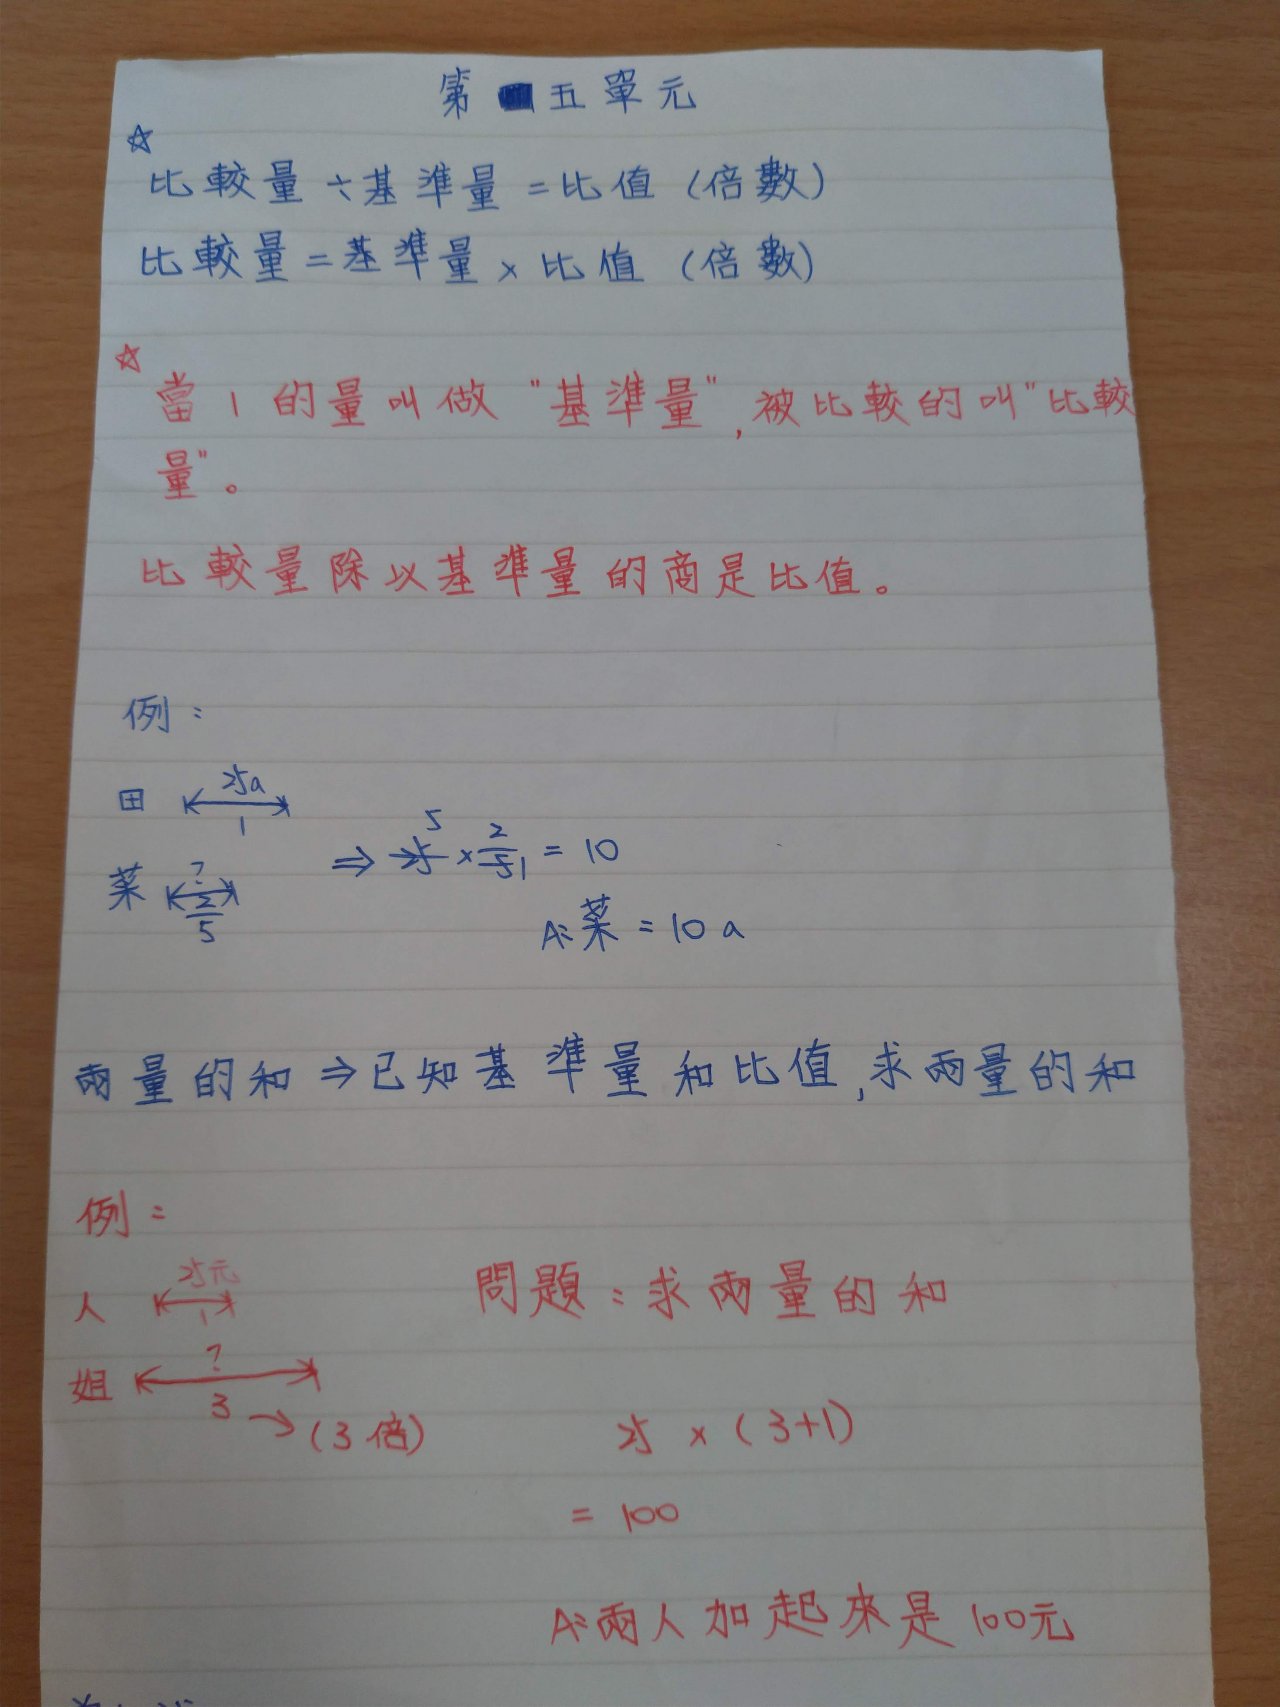 第五單元
☆
比較量÷基準量=比值(倍數)
比較量=基準量×比值(倍數)
☆
當1的量叫做"基準量",被比較的叫"比較
量"。
比較量除以基準量的商是比值。
例:
田 25a 1
菜 ? 2/5
⇒ 25 5 × 2/5 1 = 10
A:菜=10a
兩量的和⇒已知基準量和比值,求兩量的和
例:
人 25元 1
問題:求兩量的和
姐 ? 3 → (3倍)
25×(3+1)
=100
A:兩人加起來是100元